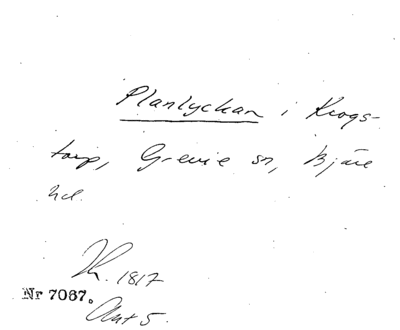 Planlyckan i Krogs-
torp, Grevie sn, Bjäre
hd.
Th. 1817
Nr 7067.
Ant 5.